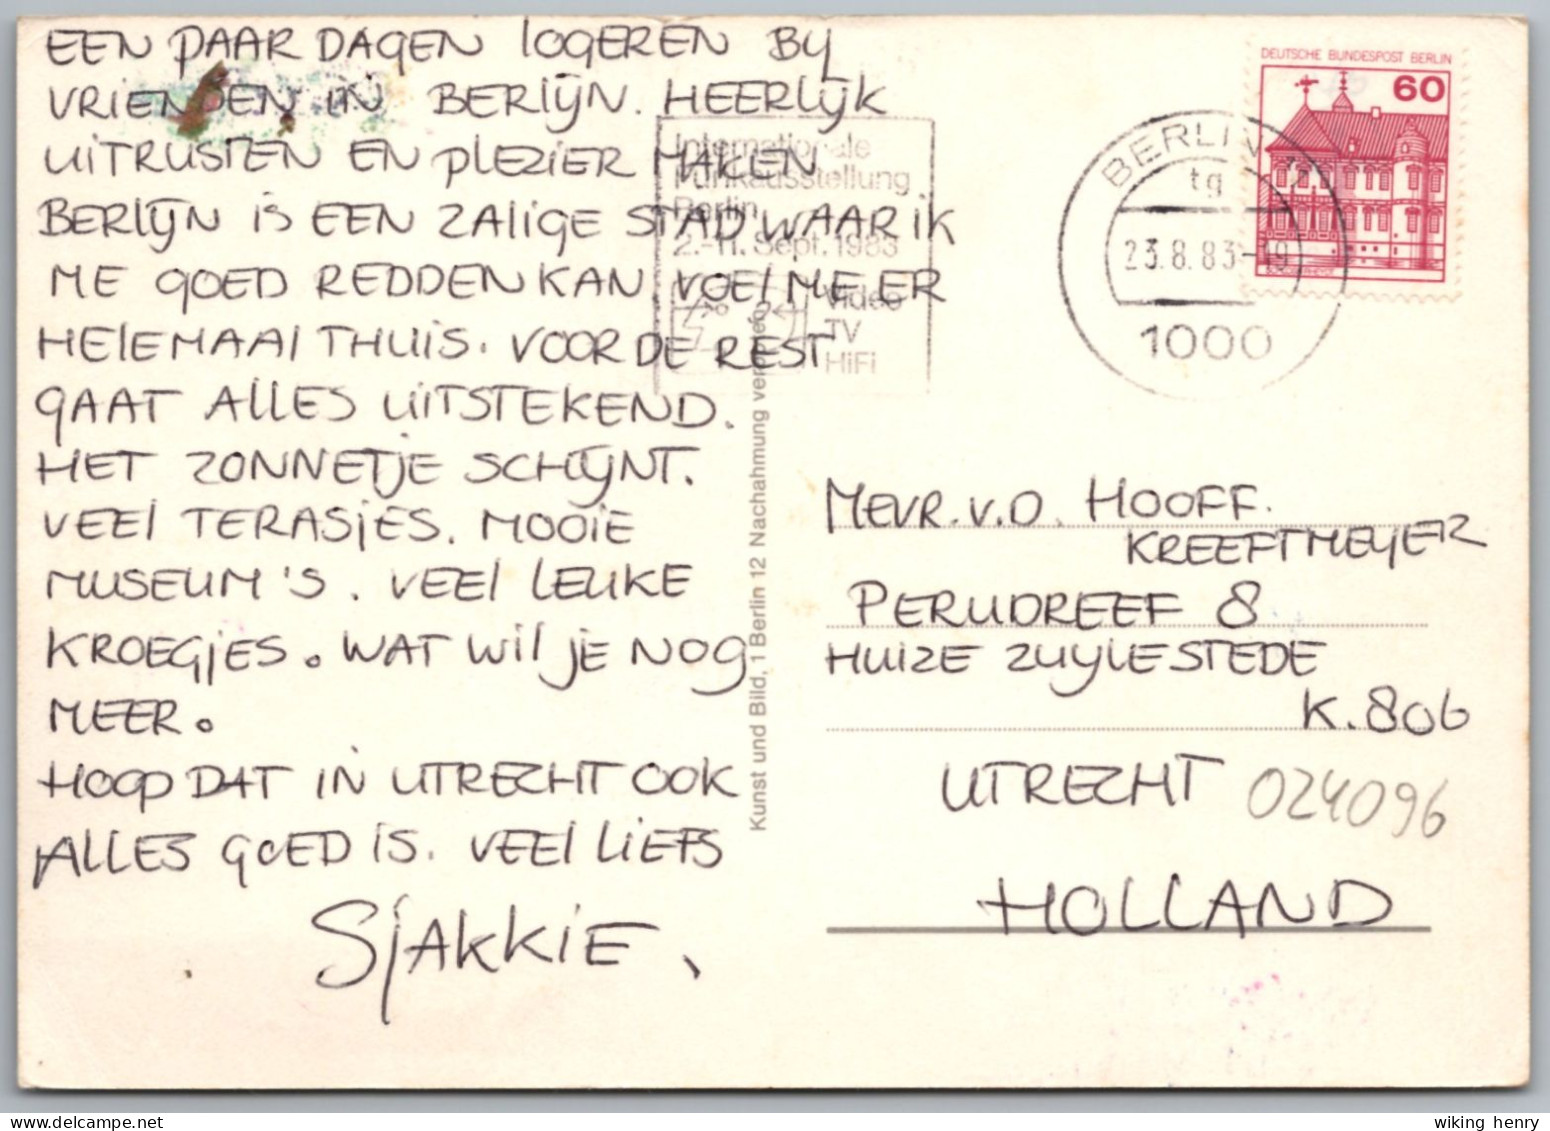 EEN PAAR DAGEN LOGEREN BIJ
VRIENDEN IN BERLIJN. HEERLIJK
UITRUSTEN EN PLEZIER MAKEN
BERLIJN IS EEN ZALIGE STAD WAAR IK
ME GOED REDDEN KAN VOEL ME ER
HELEMAAL THUIS. VOOR DE REST
GAAT ALLES UITSTEKEND.
HET ZONNETJE SCHIJNT.
VEEL TERASJES. MOOIE
MUSEUM'S. VEEL LEUKE
KROEGJES. WAT WIL JE NOG
MEER.
HOOP DAT IN UTRECHT OOK
ALLES GOED IS. VEEL LIEFS
SJAKKIE.
Internationale
Funkausstellung
Berlin
2.-11. Sept. 1983
Video
TV
HiFi
Kunst und Bild, 1 Berlin 12 Nachahmung verboten
DEUTSCHE BUNDESPOST BERLIN
60
BERLIN 12
tg
23.8.83-19
1000
MEVR. V.D. HOOFF.
KREEFTMEYER
PERUDREEF 8
HUIZE ZUYLESTEDE
K. 806
UTRECHT 024096
HOLLAND
wiking henry